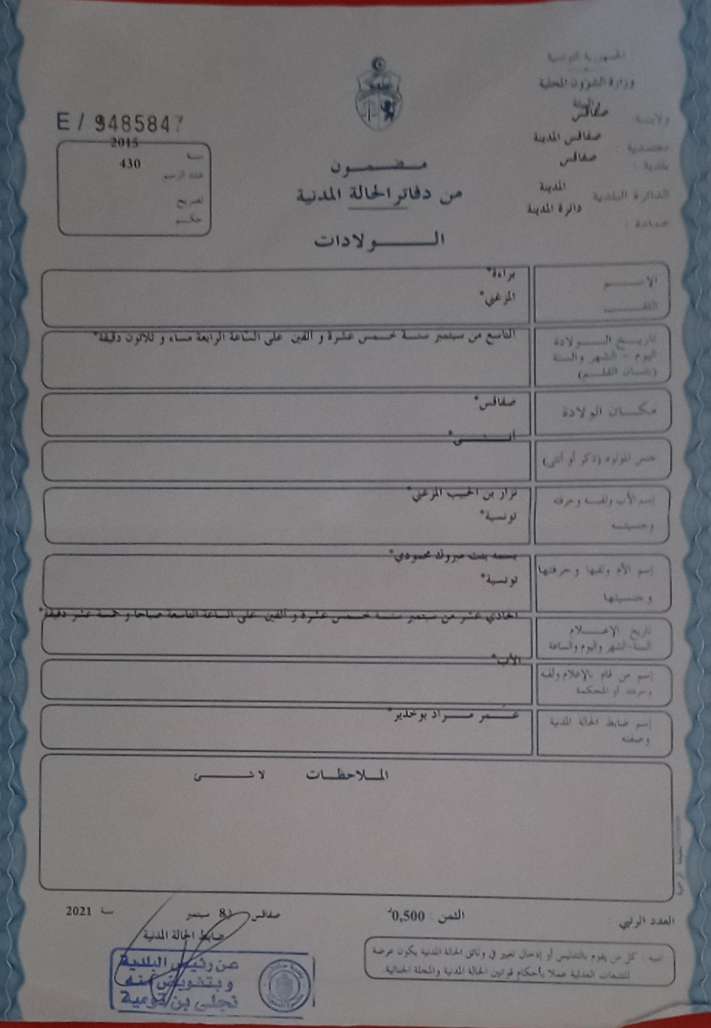 الجمهورية التونسية
وزارة الشؤون المحلية
والبيئة
ولاية: صفاقس
معتمدية: صفاقس المدينة
بلدية: صفاقس
الدائرة البلدية المدينة
عمادة: دائرة المدينة
E / 9485847
سنة 2015
عدد الرسم 430
تصريح
حكم
مضمون
من دفاتر الحالة المدنية
الولادات
الاسم براءة*
اللقب المزغني*
تاريخ الولادة
اليوم - الشهر والسنة
(بلسان القلم)
التاسع من سبتمبر سنة خمس عشرة و ألفين على الساعة الرابعة مساء و ثلاثون دقيقة*
مكان الولادة صفاقس*
جنس المولود (ذكر أو أنثى) أنثى*
إسم الأب ولقبه وحرفته نزار بن الحبيب المزغني*
وجنسيته تونسية*
إسم الأم ولقبها وحرفتها بسمة بنت مبروك محمودي*
وجنسيتها تونسية*
تاريخ الإعلام
السنة-الشهر واليوم والساعة
الحادي عشر من سبتمبر سنة خمس عشرة و ألفين على الساعة التاسعة صباحا و خمسة عشر دقيقة*
إسم من قام بالإعلام ولقبه الأب*
وحرفته أو المحكمة
إسم ضابط الحالة المدنية عمر مراد بوخذير*
وصفته
الملاحظات لا شيء
العدد الرتبي: الثمن: 0,500د صفاقس 8 سبتمبر سنة 2021
ضابط الحالة المدنية
تنبيه : كل من يقوم بالتدليس أو إدخال تغيير في وثائق الحالة المدنية يكون عرضة
للتتبعات العدلية عملا بأحكام قوانين الحالة المدنية والمجلة الجنائية.
عن رئيس البلدية
وبتفويض منه